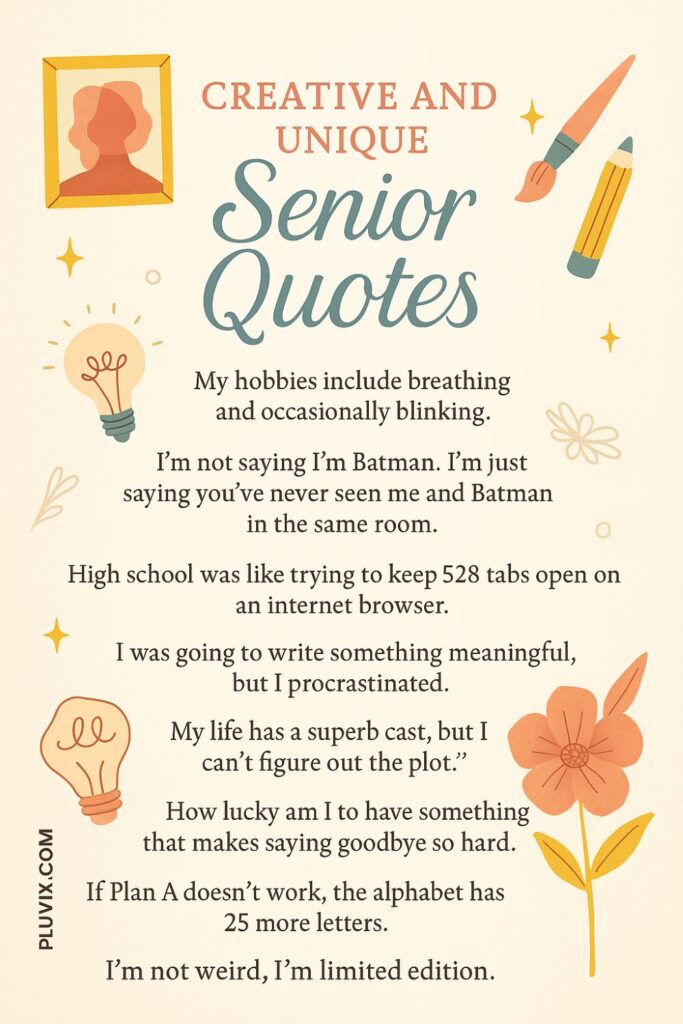 CREATIVE AND
UNIQUE
Senior
Quotes
My hobbies include breathing
and occasionally blinking.
I’m not saying I’m Batman. I’m just
saying you’ve never seen me and Batman
in the same room.
High school was like trying to keep 528 tabs open on
an internet browser.
I was going to write something meaningful,
but I procrastinated.
My life has a superb cast, but I
can’t figure out the plot.”
How lucky am I to have something
that makes saying goodbye so hard.
If Plan A doesn’t work, the alphabet has
25 more letters.
I’m not weird, I’m limited edition.
PLUVIX.COM